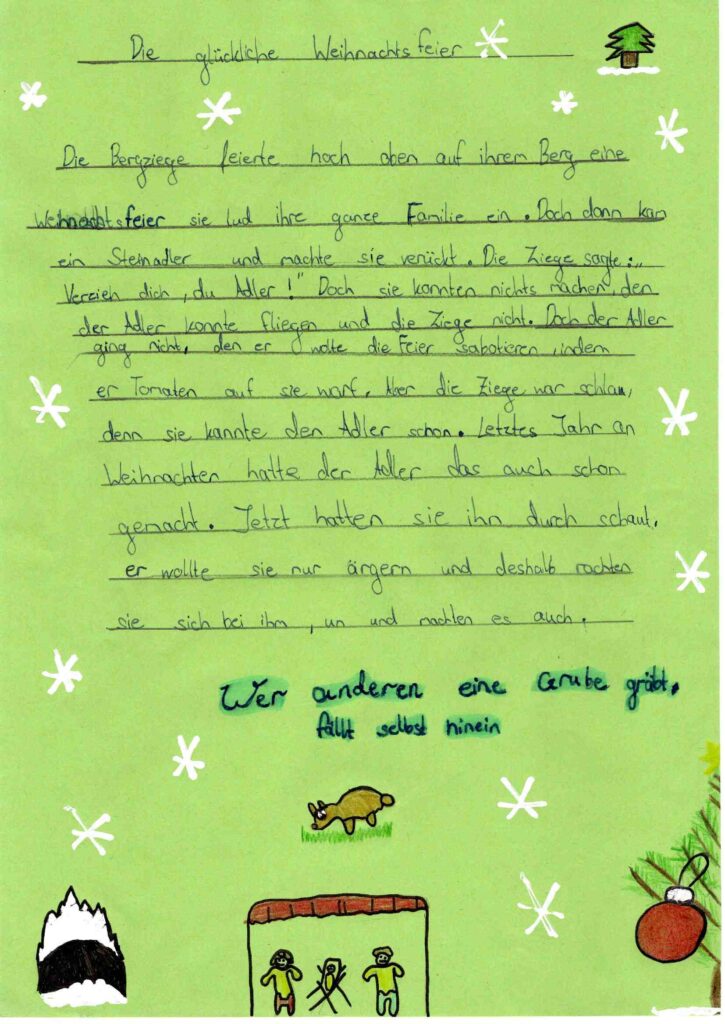 Die glückliche Weihnachtsfeier
Die Bergziege feierte hoch oben auf ihrem Berg eine
Weihnachtsfeier sie lud ihre ganze Familie ein. Doch dann kam
ein Steinadler und machte sie verückt. Die Ziege sagte: „
Verzieh dich, du Adler!" Doch sie konnten nichts machen, den
der Adler konnte fliegen und die Ziege nicht. Doch der Adler
ging nicht, den er wolte die Feier sabotieren, indem
er Tomaten auf sie warf. Aber die Ziege war schlau,
denn sie kannte den Adler schon. Letztes Jahr an
Weihnachten hatte der Adler das auch schon
gemacht. Jetzt hatten sie ihn durch schaut.
er wollte sie nur ärgern und deshalb rachten
sie sich bei ihm, un und machten es auch.
Wer anderen eine Grube gräbt,
fällt selbst hinein